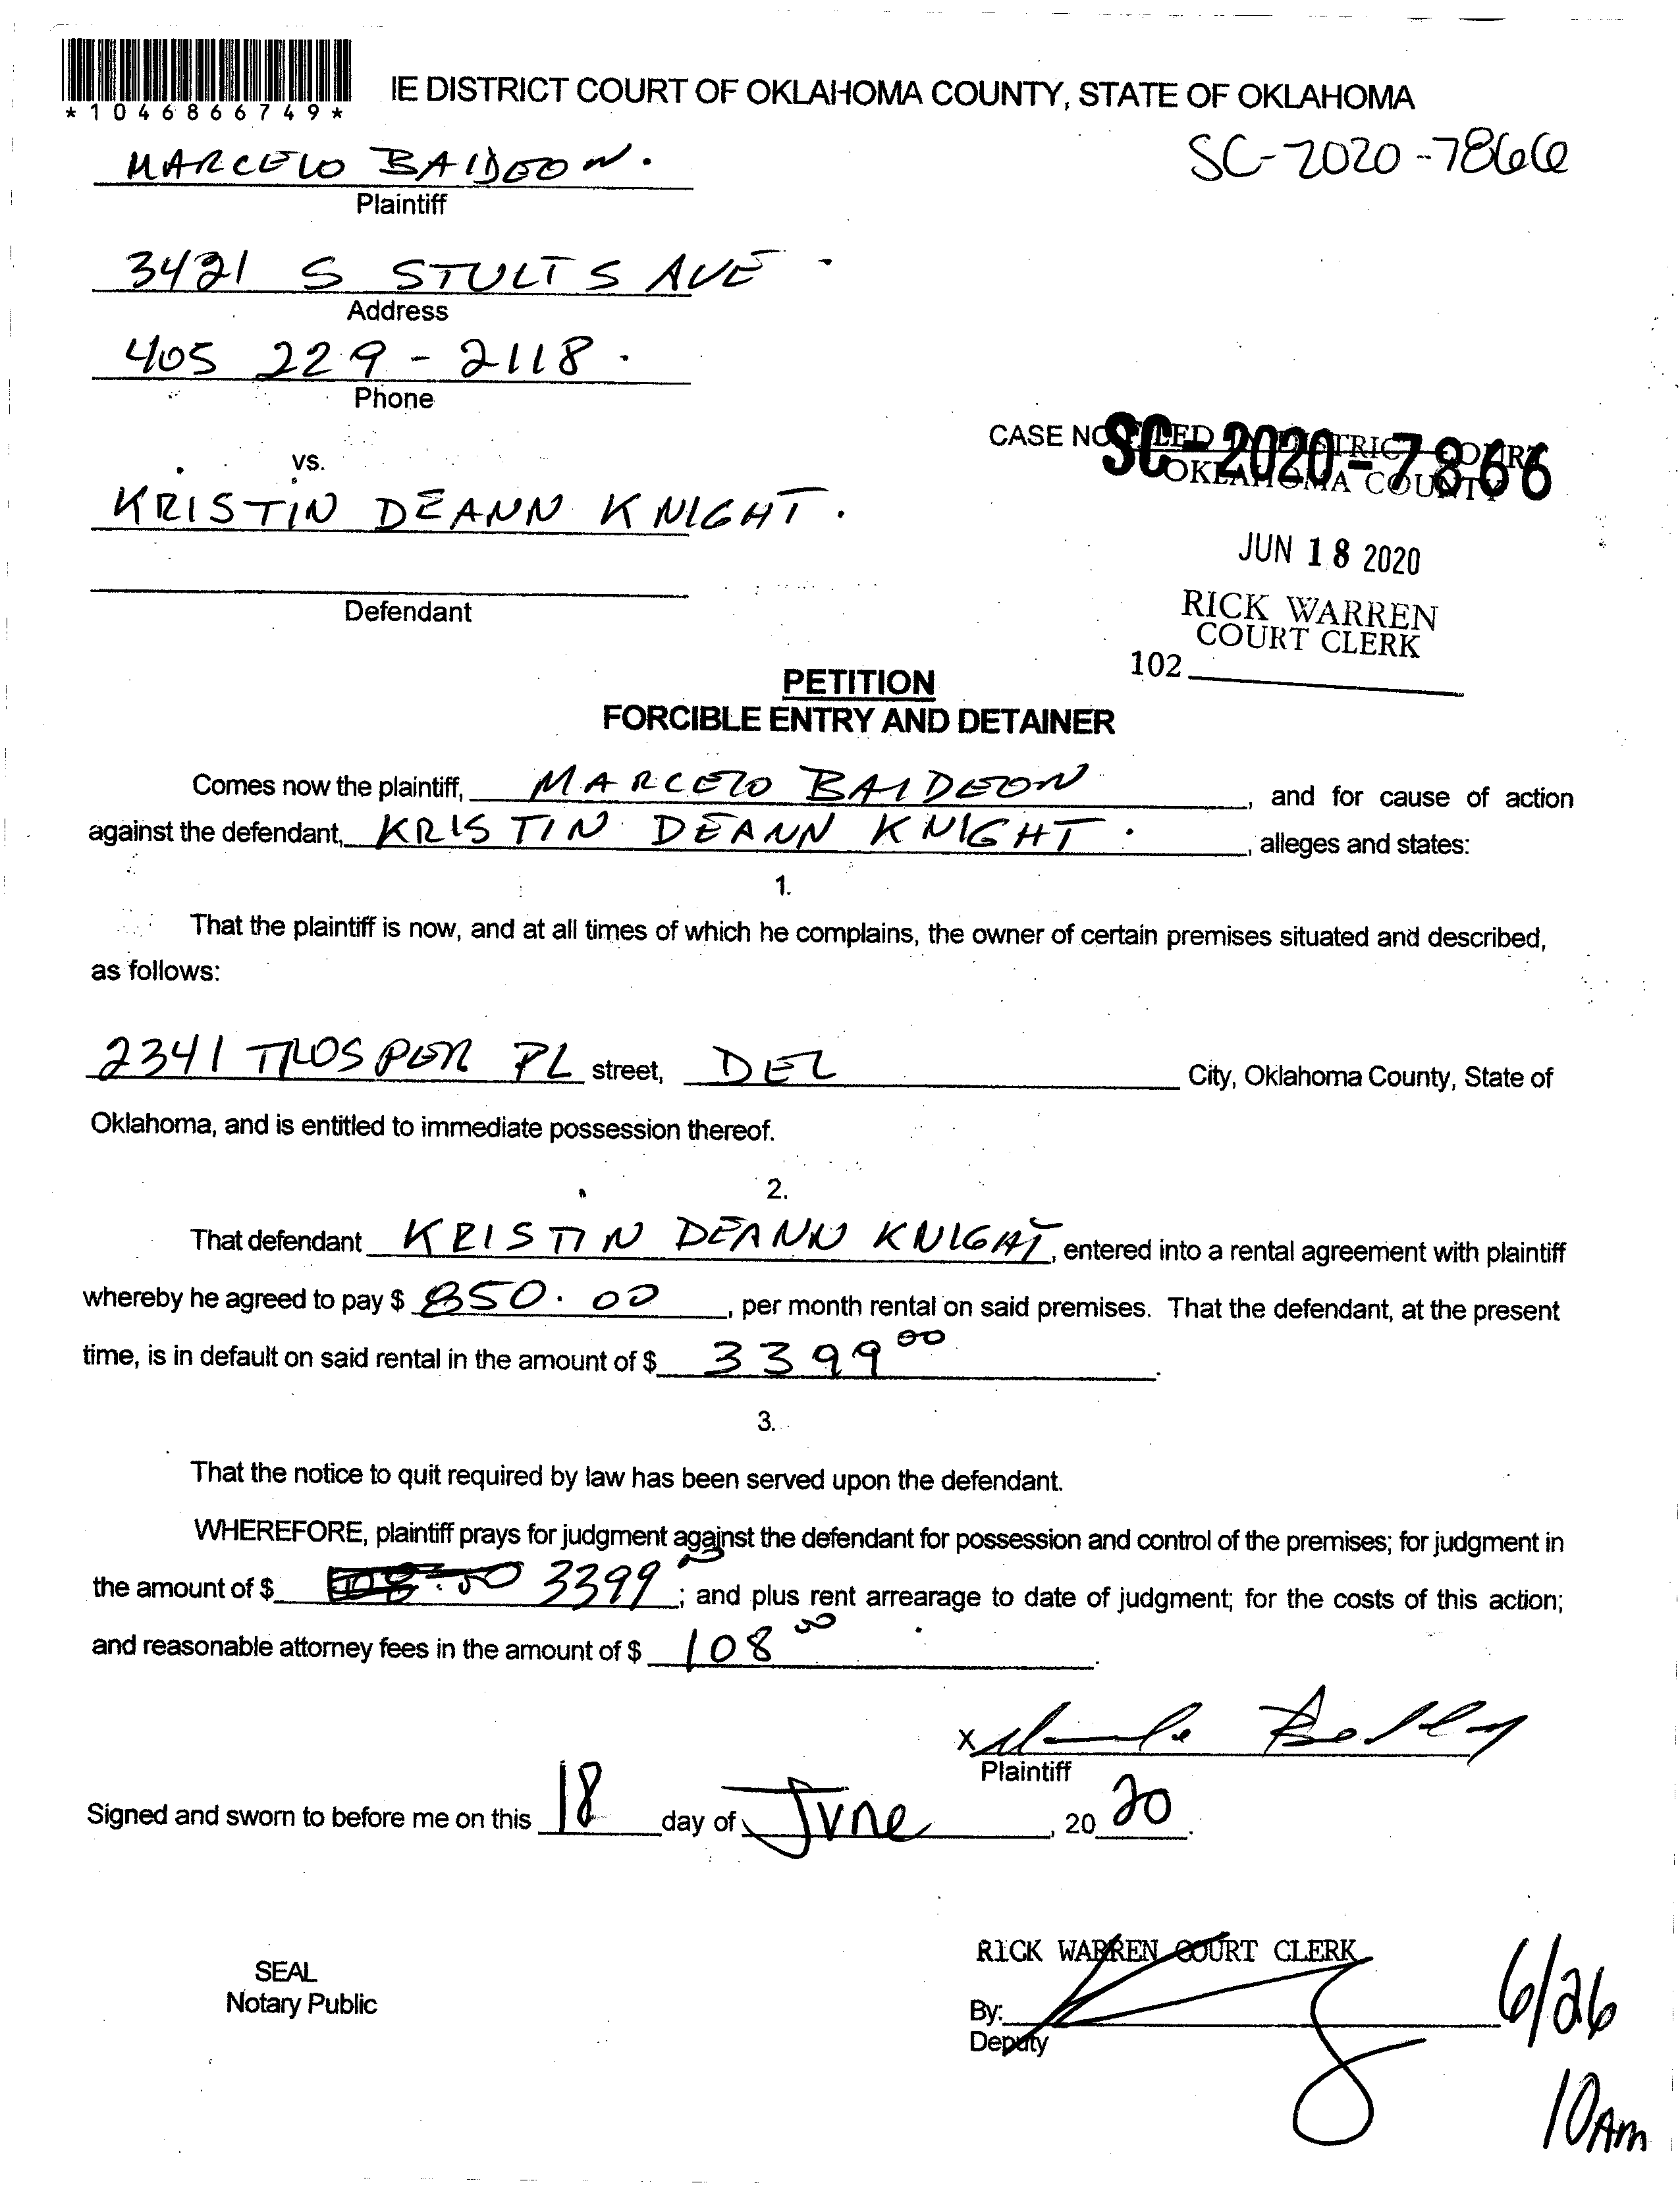 *1046866749*
IE DISTRICT COURT OF OKLAHOMA COUNTY, STATE OF OKLAHOMA
SC-2020-7866
MARCELO BAIDEON.
Plaintiff
3421 S STULTS AVE.
Address
405 229-2118.
Phone
CASE NO SC-2020-7866
FILED DISTRICT COURT
OKLAHOMA COUNTY
vs.
KRISTIN DEANN KNIGHT.
JUN 18 2020
RICK WARREN
COURT CLERK
Defendant
102
PETITION
FORCIBLE ENTRY AND DETAINER
Comes now the plaintiff, MARCELO BAIDEON, and for cause of action
against the defendant, KRISTIN DEANN KNIGHT., alleges and states:
1.
That the plaintiff is now, and at all times of which he complains, the owner of certain premises situated and described,
as follows:
2341 TROSPER PL street, DEL City, Oklahoma County, State of
Oklahoma, and is entitled to immediate possession thereof.
2.
That defendant KRISTIN DEANN KNIGHT, entered into a rental agreement with plaintiff
whereby he agreed to pay $ 850.00, per month rental on said premises. That the defendant, at the present
time, is in default on said rental in the amount of $ 3399 00.
3.
That the notice to quit required by law has been served upon the defendant.
WHEREFORE, plaintiff prays for judgment against the defendant for possession and control of the premises; for judgment in
the amount of $ 3399 00; and plus rent arrearage to date of judgment; for the costs of this action;
and reasonable attorney fees in the amount of $ 108 00.
X
Plaintiff
Signed and sworn to before me on this 18 day of June, 20 20.
RICK WARREN COURT CLERK
SEAL
Notary Public
By:
Deputy
6/26
10Am